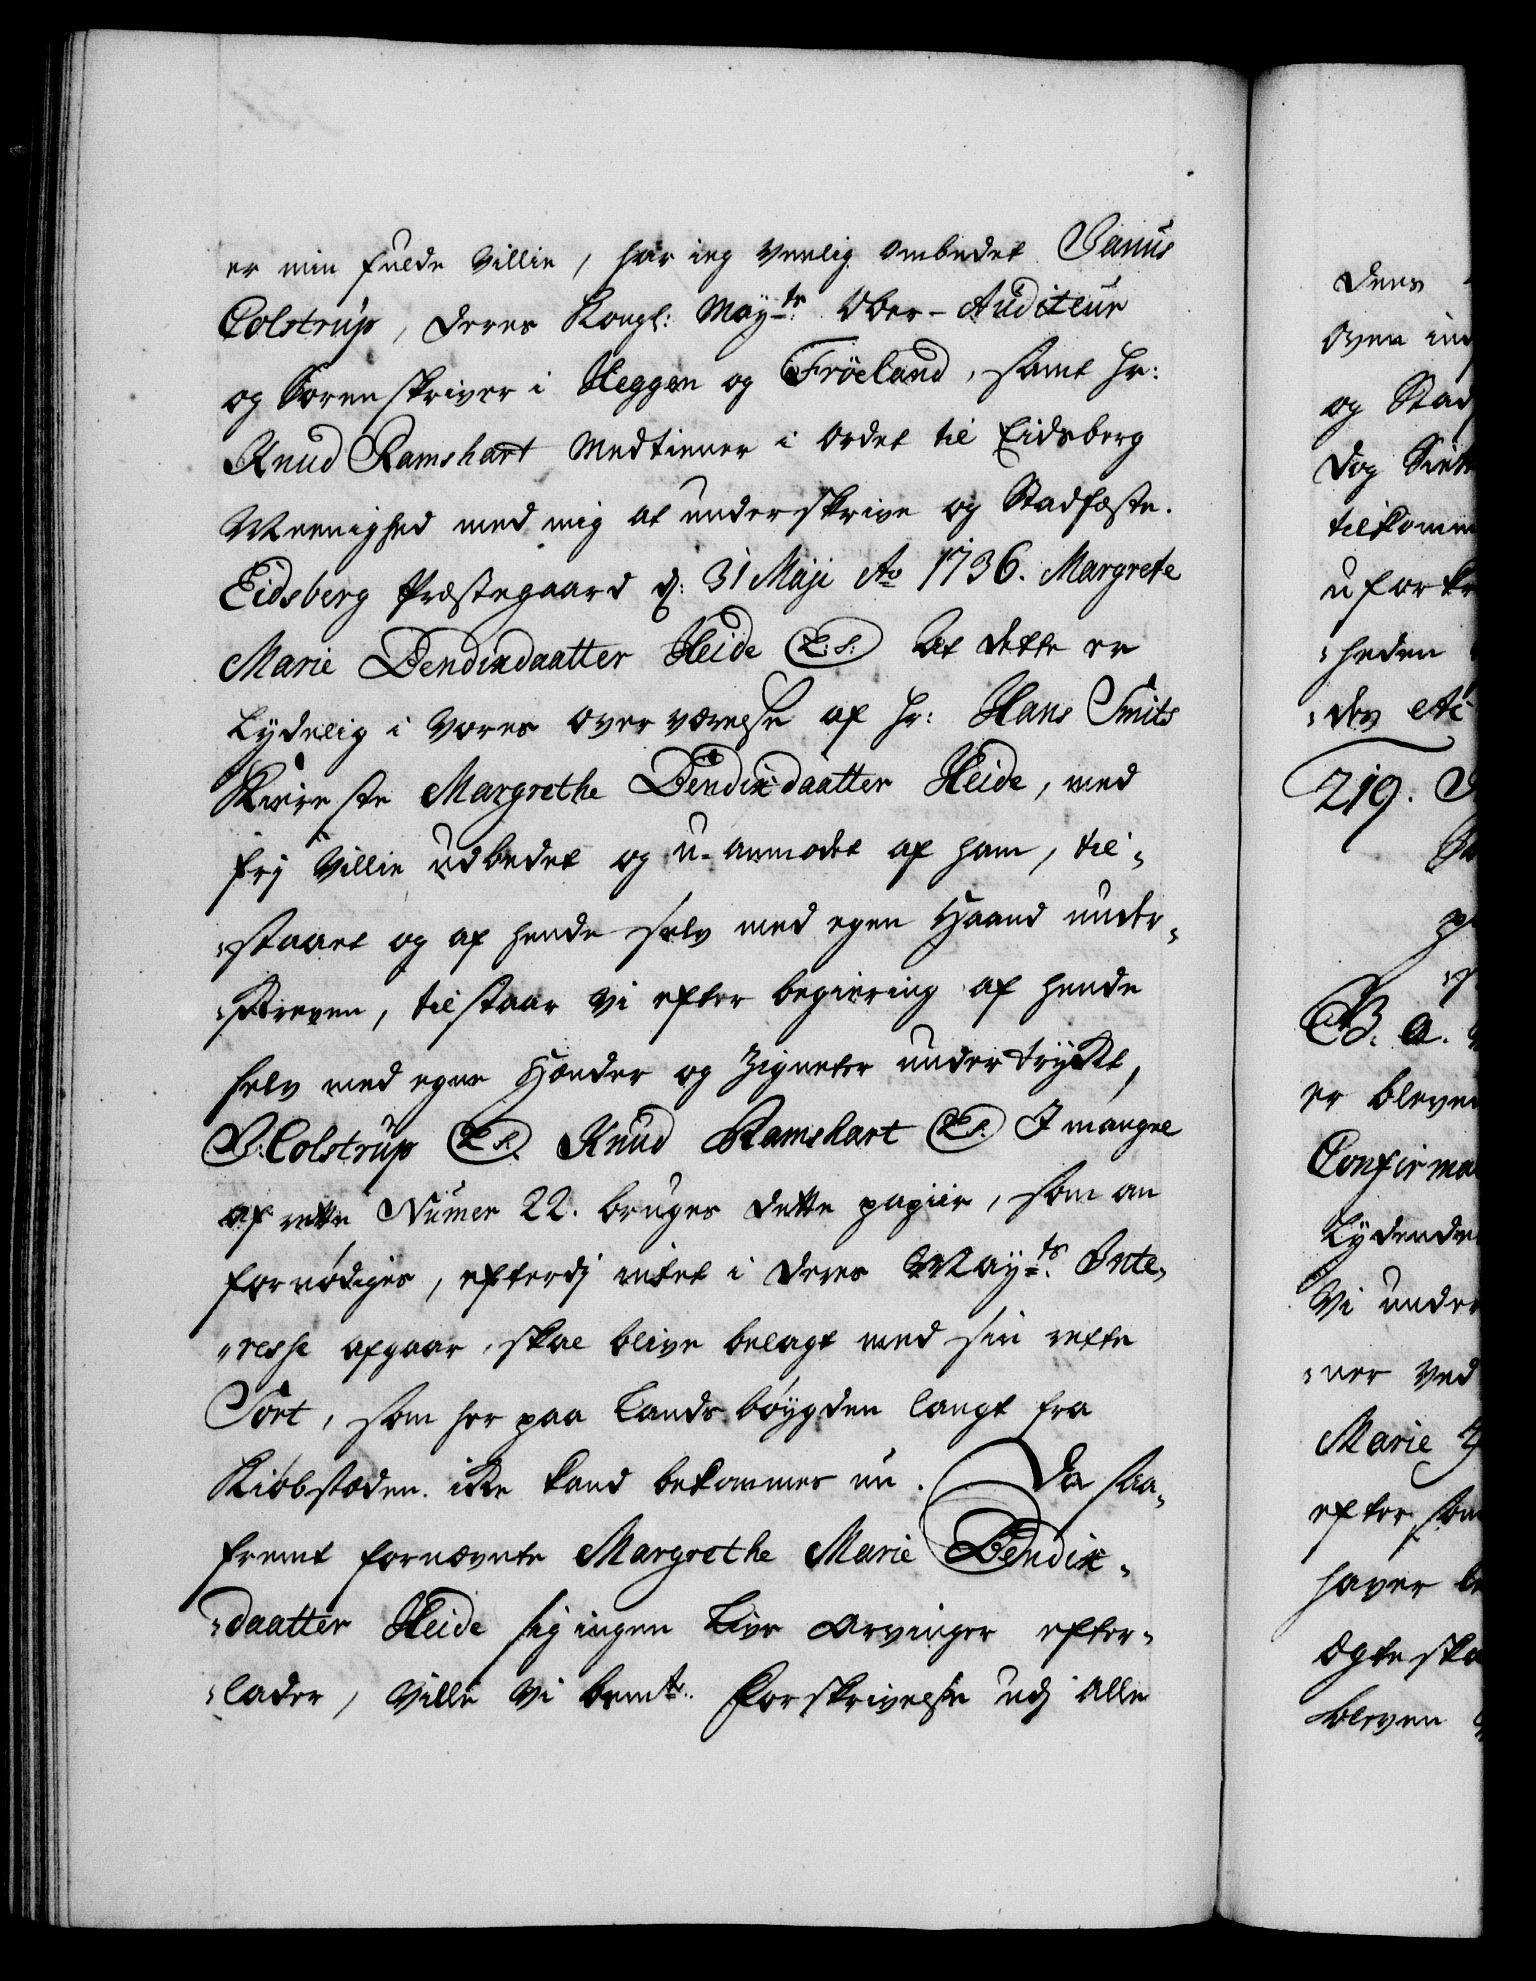 er min fulde Villie, har ieg Venlig ombedet Vanus
Colstrup, deres Kongl: May<sup>ts</sup>: Ober-Auditeur
og Sorenskriver i Heggen og Frøeland, samt Hr:
Knud Ramshart Medtiener i Ordet til Eidsberg
Meenighed med mig at underskrive og Stadfæste.
Eidsberg Præstegaard d: 31 Maji Ao 1736. Margrete
Marie Bendixdaatter Heide (L:S:) At dette er
Lydelig i Vores overværelse af Hr: Hans Smits
Kiæreste Margrethe Bendixdaatter Heide, med
frj Villie udbedet og u-anmodet af ham, til-
-staaet og af hende selv med egen Haand under-
-skreven, tilstaar Vi efter begiering af hende
selv med egne Hænder og Zigneter undertrykt,
V: Colstrup (L.S.) Knud Ramshart (L.S.) I mangel
af rette Numer 22. bruges dette papiir, som an
fornødiges, efterdj intet i deres May<sup>ts</sup>: Inte-
-resse afgaar, skal blive belagt med sin rette
Sort, som her paa Lands bøygden langt fra
Kiøbstæden ikke kand bekommes nu. Da saa-
fremt fornævnte Margrethe Marie Bendix-
-daatter Heide sig ingen Livs Arvinger efter-
-lader, Ville Vi bem<sup>te</sup>: Forskrivelse udj alle
deres
Oven ind
og Stad
dog Siet
tilkomm
uforkr
-heden
-des
219.
B. a.
er bleven
Confirma
Lydende
Vi under
-ner Ved
Marie
eftersom
haver
Ægteska
bleven